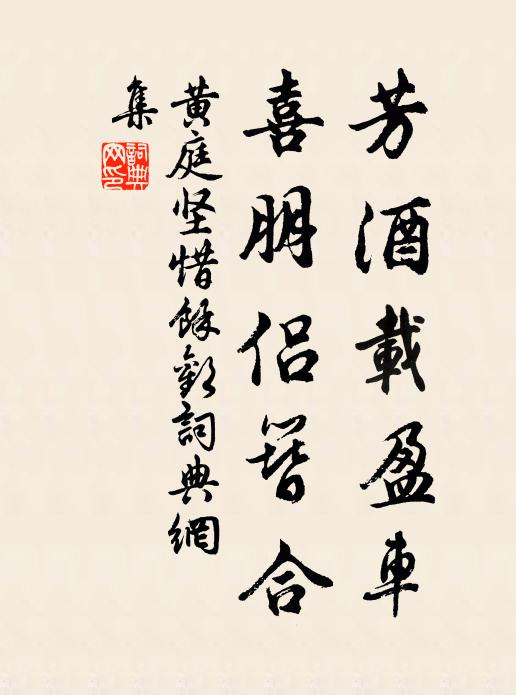 芳酒載盈車
喜朋侶簪合
黃庭坚惜餘歡詞典網
集
詞典網印